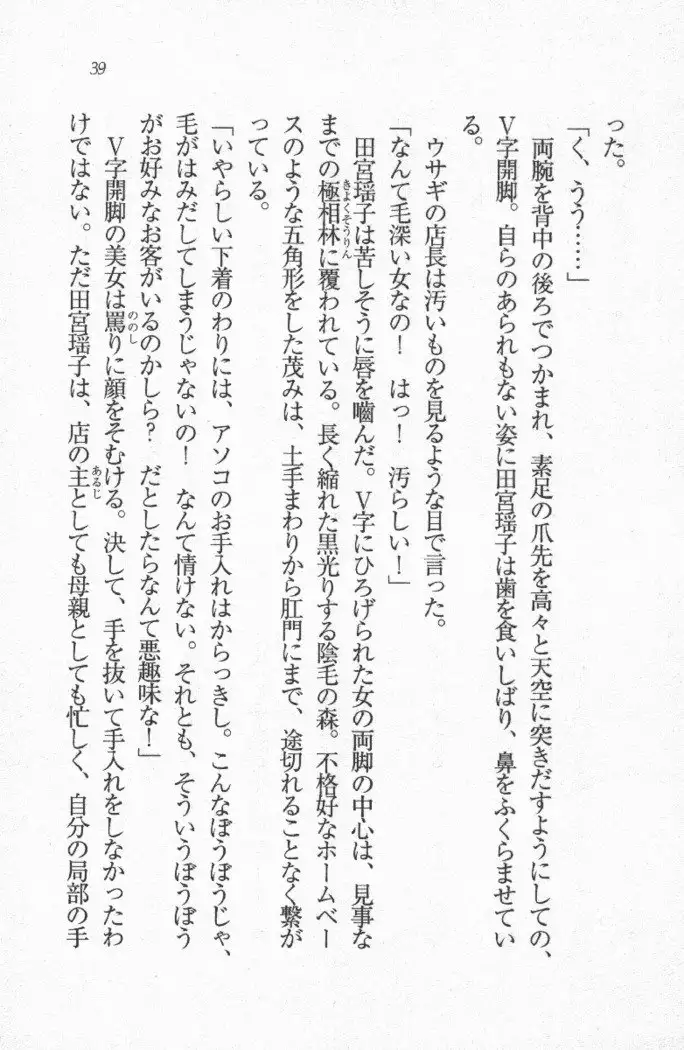 39
った。
「く、うう……」
両腕を背中の後ろでつかまれ、素足の爪先を高々と天空に突きだすようにしての、
V字開脚。自らのあられもない姿に田宮瑶子は歯を食いしばり、鼻をふくらませてい
る。
ウサギの店長は汚いものを見るような目で言った。
「なんて毛深い女なの！　はっ！　汚らしい！」
田宮瑶子は苦しそうに唇を嚙んだ。V字にひろげられた女の両脚の中心は、見事な
までの極相林に覆われている。長く縮れた黒光りする陰毛の森。不格好なホームベー
きよくそうりん
スのような五角形をした茂みは、土手まわりから肛門にまで、途切れることなく繋が
っている。
「いやらしい下着のわりには、アソコのお手入れはからっきし。こんなぼうぼうじゃ、
毛がはみだしてしまうじゃないの！　なんて情けない。それとも、そういうぼうぼう
がお好みなお客がいるのかしら？　だとしたらなんて悪趣味な！」
V字開脚の美女は罵りに顔をそむける。決して、手を抜いて手入れをしなかったわ
ののし
けではない。ただ田宮瑶子は、店の主としても母親としても忙しく、自分の局部の手
あるじ